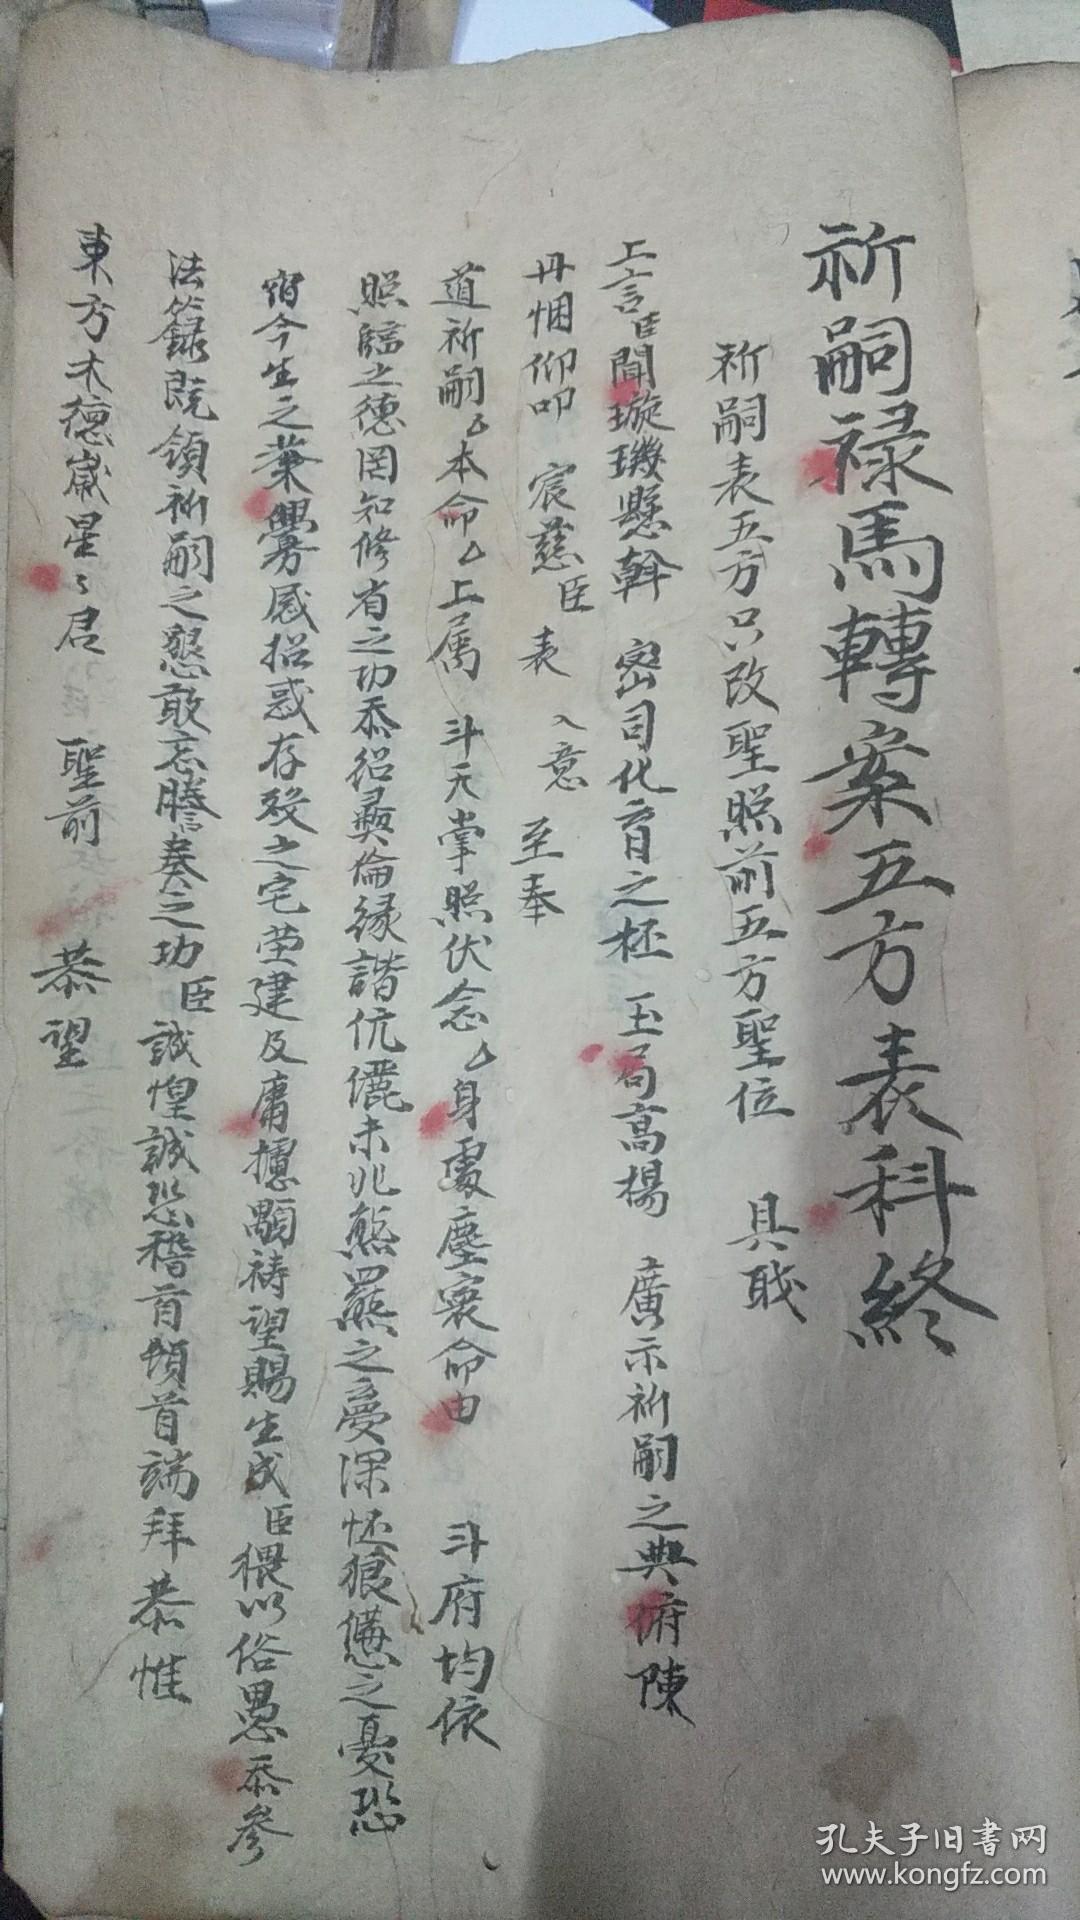 祈嗣祿馬轉案五方表科終
祈嗣表五方只改聖照前五方聖位 具職
上言臣聞璇璣懸斡 宻司化育之柸 玉局高揚 廣示祈嗣之典俯陳
丹悃仰叩 宸慈臣 表 入意 至奉
道祈嗣厶本命厶上属 斗天掌照伏念厶身處塵寰命由 斗府均依
照臨之德罔知修省之功忝紹彞倫緣諧伉儷未兆熊羆之夣深怀狼之憂恐
宿今生之業舋感招惑存殁之宅荣建及庸攄顒祷望賜生成臣猥以俗愚忝參
法籙既領祈嗣之懇敢忘謄奏之功臣誠惶誠恐稽首頓首端拜恭惟
東方木德嵗星〻君 聖前 恭望
孔夫子旧書网
www.kongfz.com